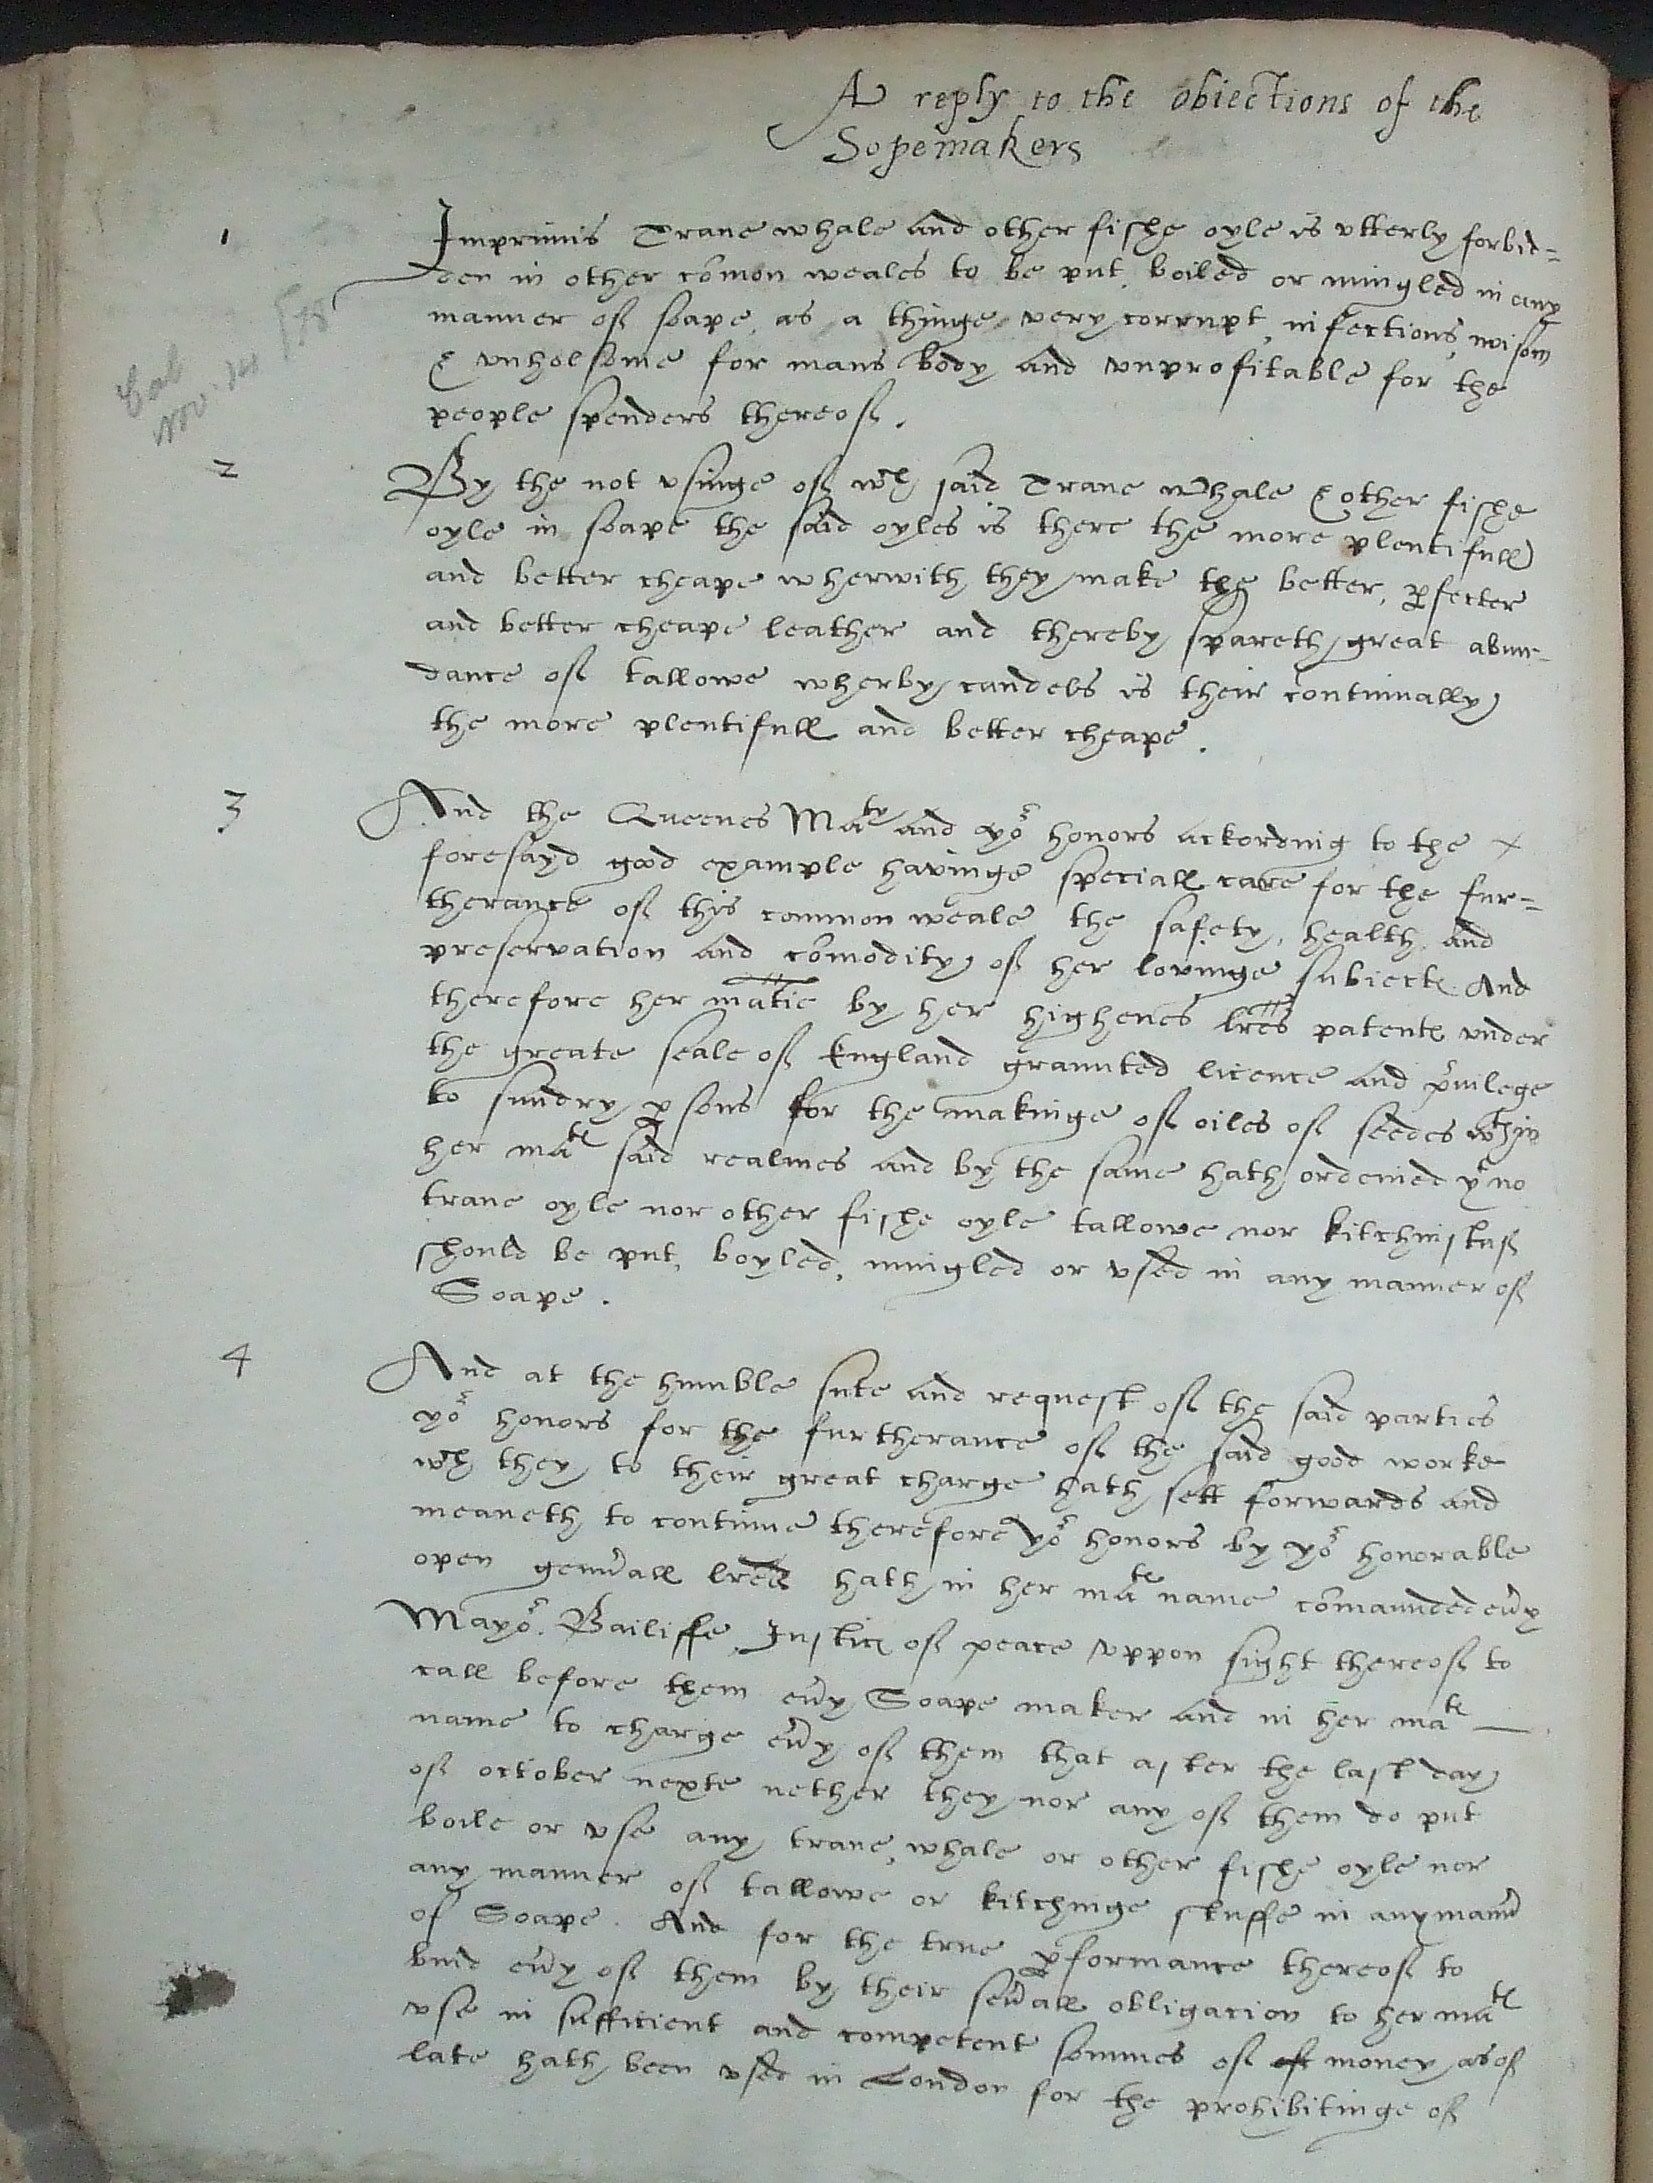 A reply to the obiections of the
Sopemakers
1 Imprimis Trane whale and other fishe oyle is vtterly forbid=
den in other comon weales to be put, boiled or mingled in any
manner of soape, as a thinge very corrupt, infectious, noisom
& vnholsome for mans body and vnprofitable for the
people spenders thereof.
2 By the not vsinge of wch said Trane whale & other fishe
oyle in soape the said oyles is there the more plentifull
and better cheape wherwith they make the better, pfecter
and better cheape leather and thereby spareth great abun-
dance of tallowe wherby candels is their continually
the more plentifull and better cheape.
3 And the Queenes Maty and yor honors ackording to the x
foresayd good example havinge speciall care for the fur=
therance of this common weale the safety, health and
preservation and comodity of her lovinge subiects And
therefore her matie by her highenes lres patents vnder
the greate seale of England graunted licence and privilege
to sundry psons for the makinge of oiles of seedes wthin
her mats said realmes and by the same hath ordeined yt no
trane oyle nor other fishe oyle tallowe nor kitchinstuf
should be put, boyled, mingled or vsed in any manner of
Soape.
4 And at the humble sute and request of the said parties
yor honors for the furtherance of the said good worke
wch they to their great charge hath sett forwards and
meaneth to continue therefore yor honors by yor honorable
open genall lres hath in her mats name comaunded euy
Mayor. Bailiffe, Justice of peace vppon sight thereof to
call before them euy Soape maker and in her mats
name to charge euy of them that after the last day
of october nexte nether they nor any of them do put
boile or vse any trane, whale or other fishe oyle nor
any manner of tallowe or kitchinge stuffe in any maner
of Soape. And for the true pformance thereof to
bind euy of them by their seuall obligacion to her mats
vse in sufficient and competent sommes of money as of
late hath been vsed in London for the prohibitinge of